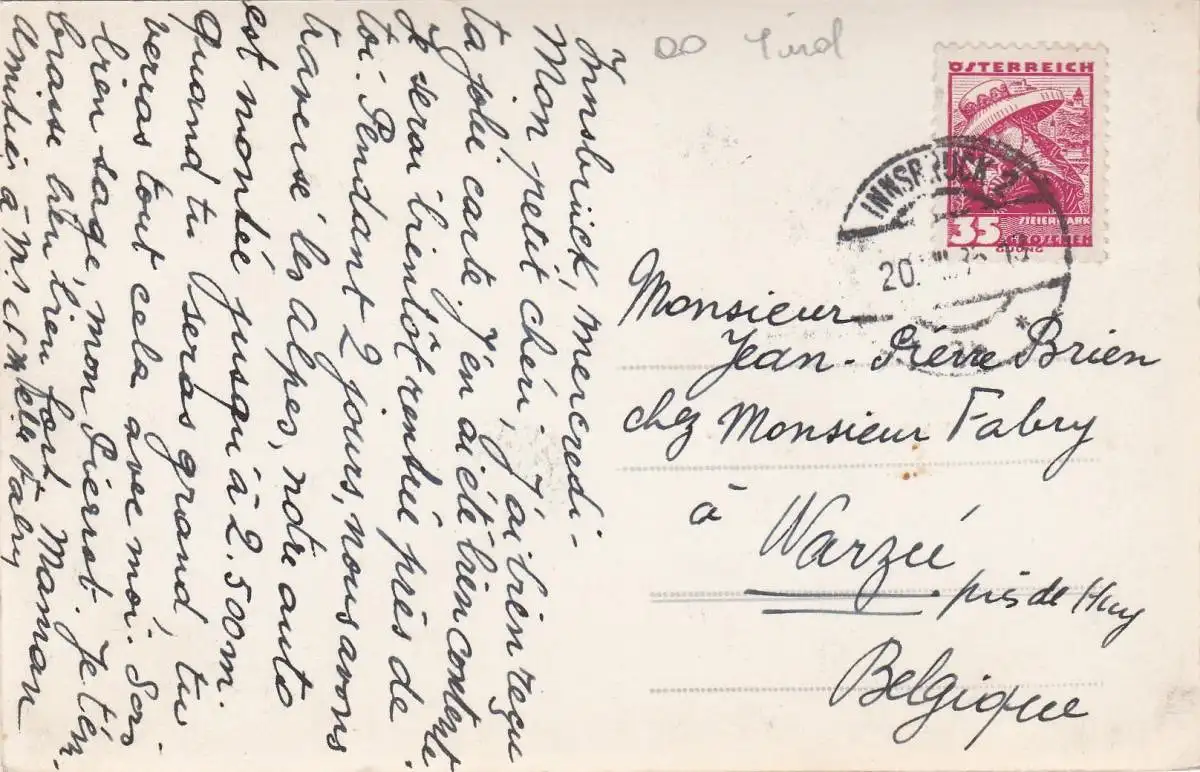 Innsbruck, mercredi -
Mon petit chéri, j'ai bien reçu
ta jolie carte. J'en ai été bien contente.
Je serai bientôt rentrée près de
toi. Pendant 2 jours, nous avons
traversé les alpes, notre auto
est montée jusqu'à 2.500m.
Quand tu seras grand, tu
verras tout cela avec moi. Sois
bien sage, mon Pierrot. Je t'em-
brasse bien bien fort. Maman
Amitiés à M. et Mlle Fabry
ÖSTERREICH
STEIERMARK
35 GROSCHEN
INNSBRUCK 2
20.
Monsieur
Jean-Pierre Brien
chez Monsieur Fabry
à
Warzée
près de Huy
Belgique